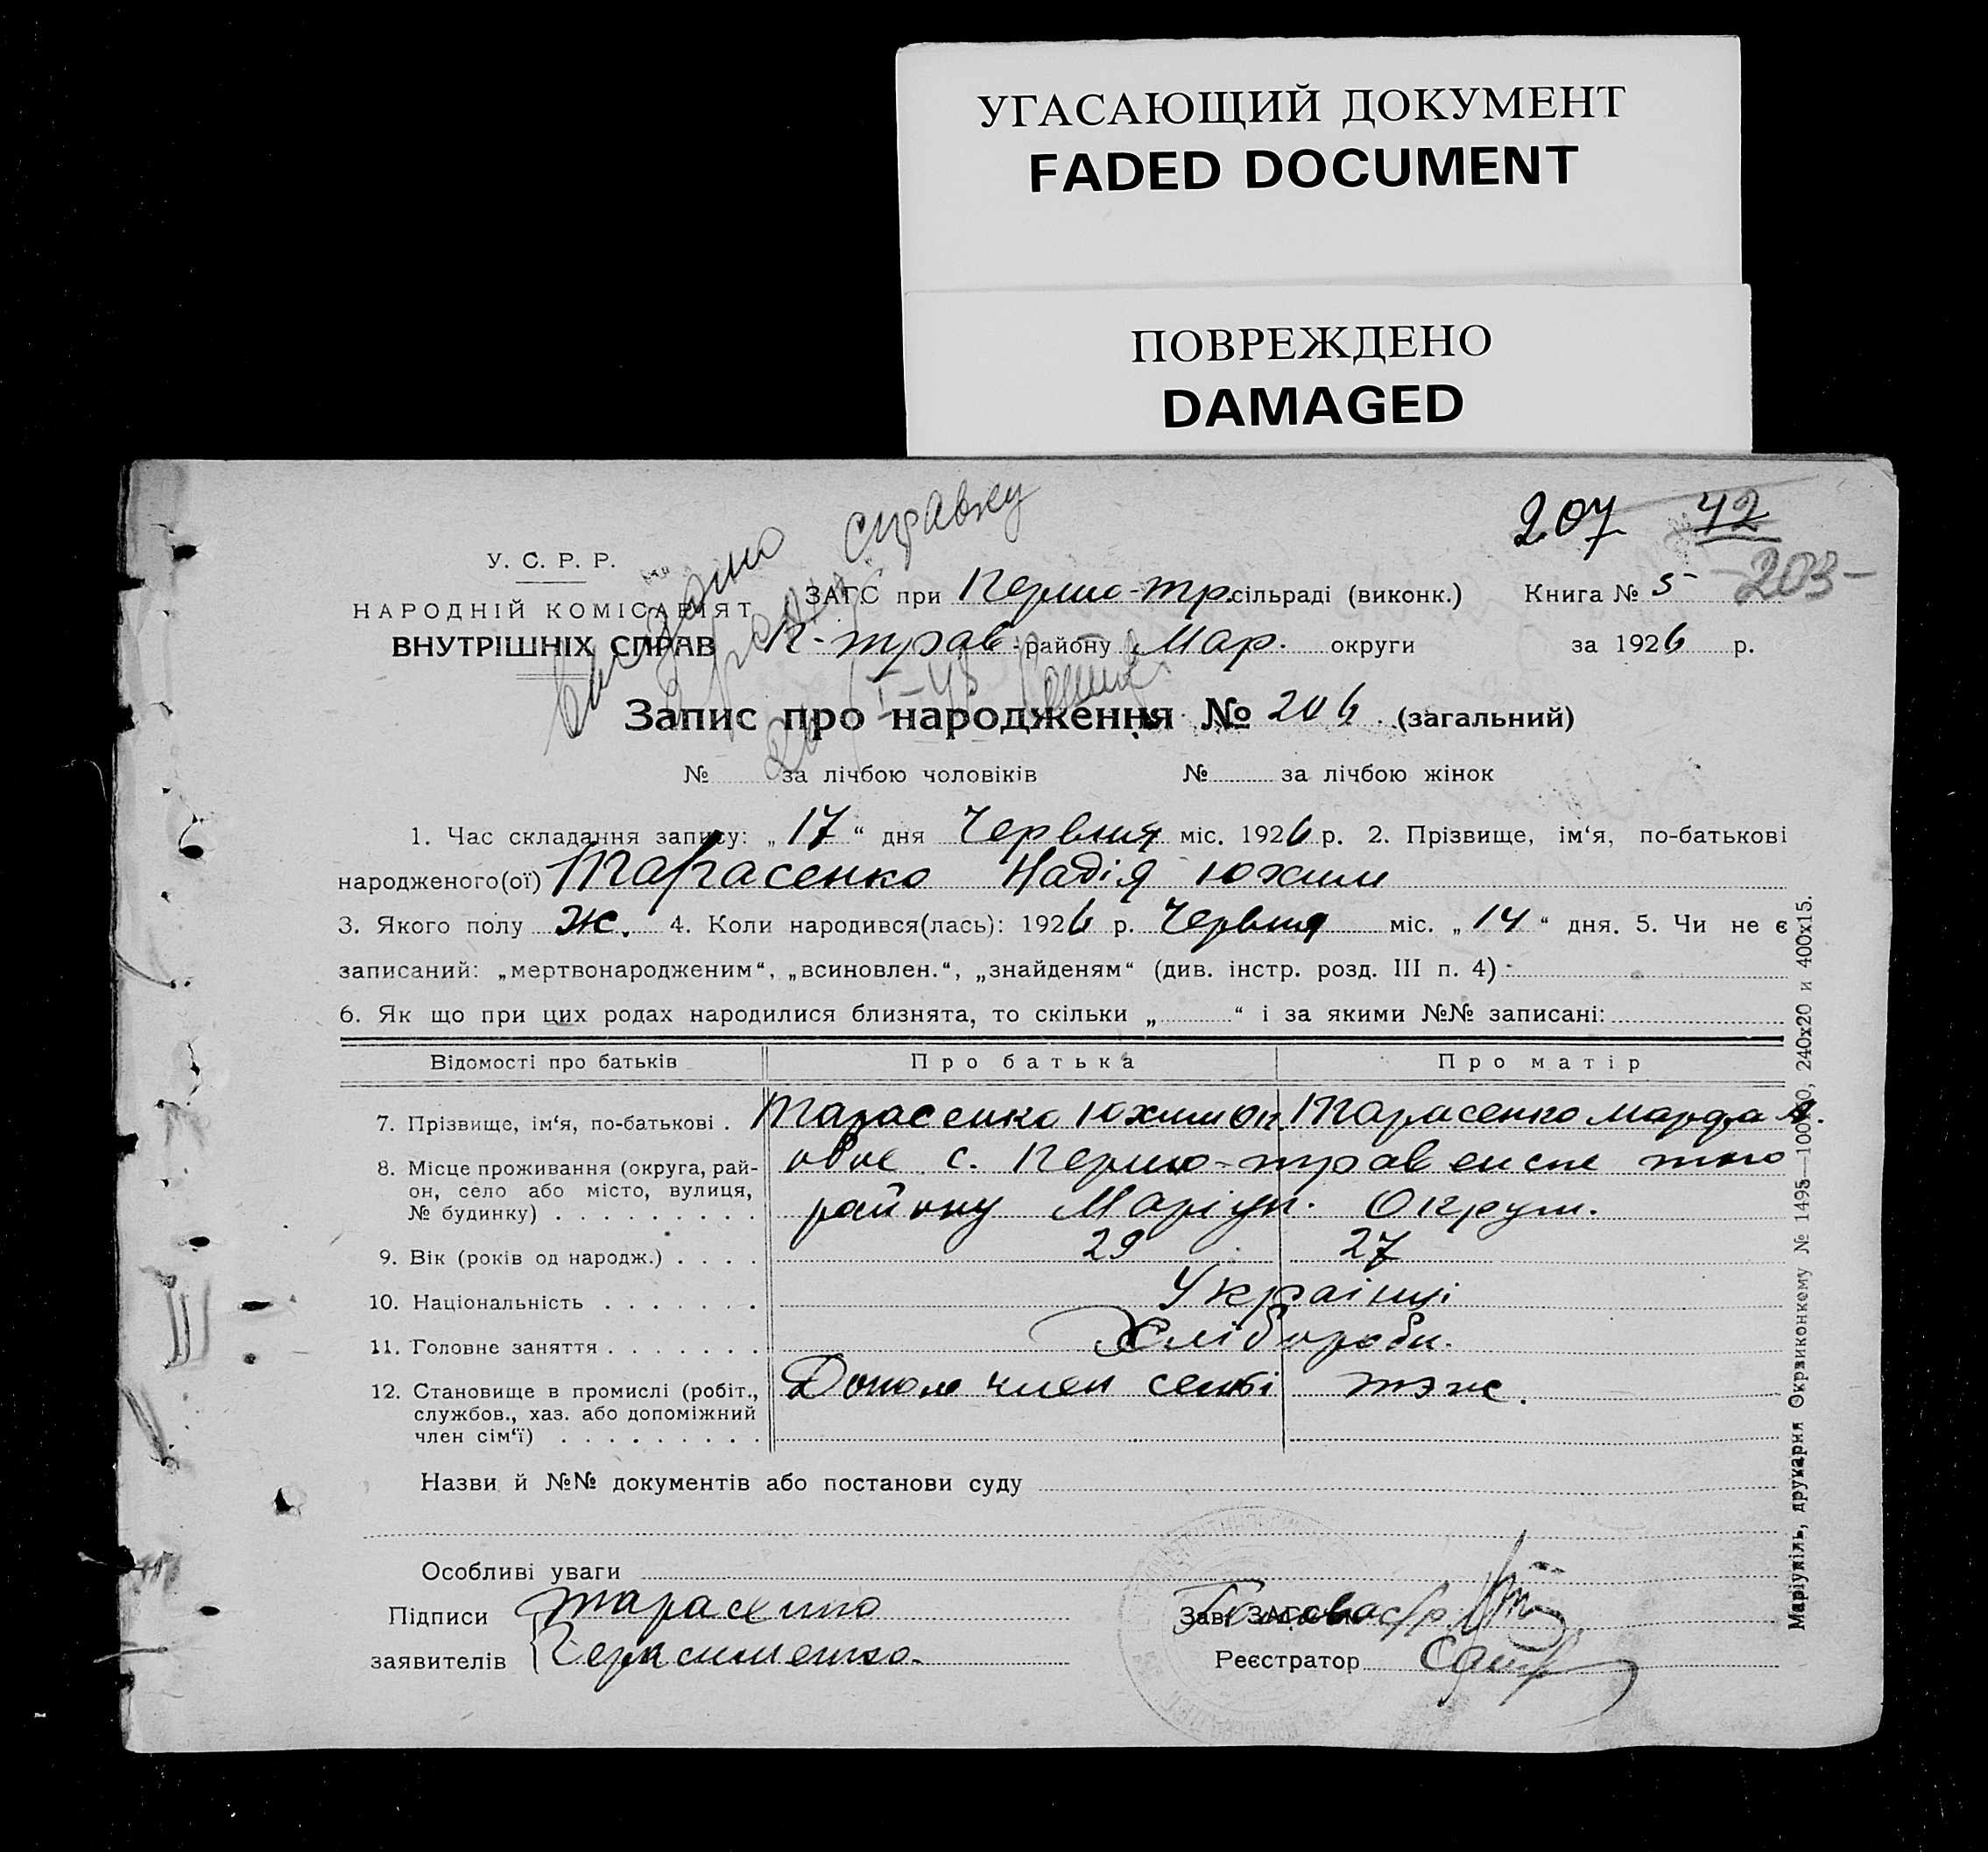 УГАСАЮЩИЙ ДОКУМЕНТ
FADED DOCUMENT
ПОВРЕЖДЕНО
DAMAGED
207 42
-203-
справку
У. С. Р. Р.
НАРОДНІЙ КОМІСАРІЯТ
ВНУТРІШНІХ СПРАВ
ЗАГС при Першо-тр. сільраді (виконк.) Книга № 5
П-трав. району Мар. округи за 1926 р.
Запис про народження № 206 (загальний)
№ за лічбою чоловіків № за лічбою жінок
1. Час складання запису: „17“ дня Червня міс. 1926 р. 2. Прізвище, ім‘я, по-батькові
народженого(ої) Тарасенко Надія Юхим
3. Якого полу Ж. 4. Коли народився(лась): 1926 р. Червня міс. „14“ дня. 5. Чи не є
записаний: „мертвонародженим“, „всиновлен.“, „знайденям“ (див. інстр. розд. III п. 4) -
6. Як що при цих родах народилися близнята, то скільки „ “ і за якими №№ записані:
Відомості про батьків Про батька Про матір
7. Прізвище, ім‘я, по-батькові . Тарасенко Юхим Тарасенко
8. Місце проживання (округа, рай-
он, село або місто, вулиця,
№ будинку) . . . . . . . . .
обоє с. Першо-травенське того
району Маріуп. Округи.
9. Вік (років од народж.) . . . . 29 27
10. Національність . . . . . . . Українці
11. Головне заняття . . . . . . . Хлібороби.
12. Становище в промислі (робіт.,
службов., хаз. або допоміжний
член сім‘ї) . . . . . . . . .
Допом член семї тэж.
Назви й №№ документів або постанови суду
Особливі уваги
Підписи Тарасенко
заявителів Герасименко.
Зав. ЗАГС‘ом Голова с/р
Реєстратор
Маріупіль, друкарня Окрвиконкому № 1495—100000, 240х20 и 400х15.